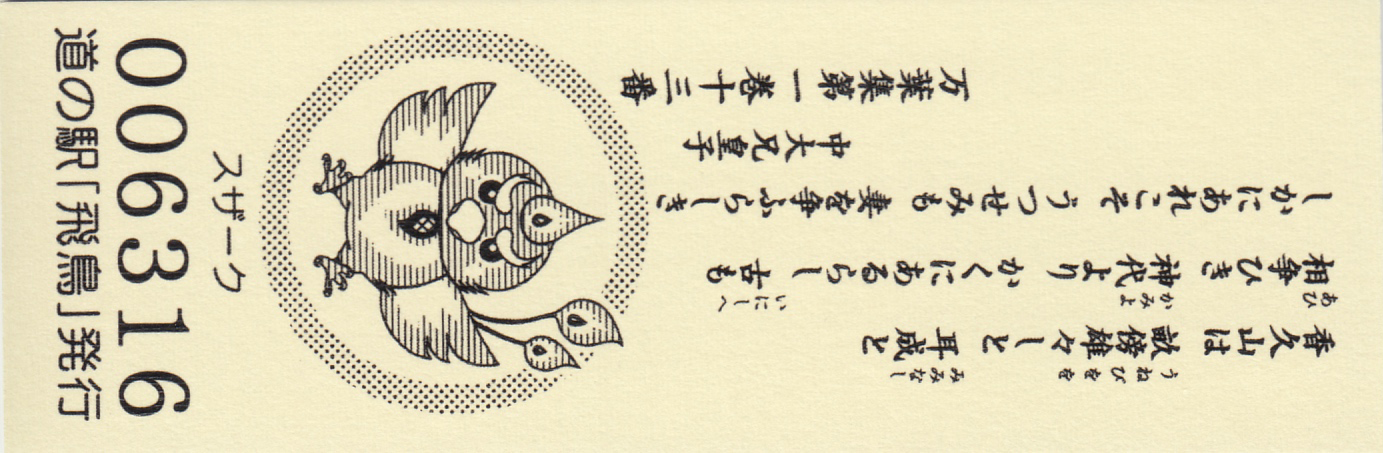 香久山は 畝傍雄々しと 耳成と
うねびをを みみなし
相争ひき 神代より かくにあるらし 古も
あひ かみよ いにしへ
しかにあれこそ うつせみも 妻を争ふらしき
中大兄皇子
万葉集第一巻十三番
スザーク
006316
道の駅「飛鳥」発行